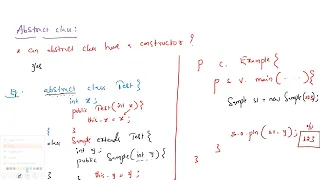 Abstract class:
* can abstract class have a constructor?
yes
Eg. abstract class Test {
int x;
public Test(int x) {
this.x = x;
}
}
class Sample extends Test {
int y;
public Sample(int y) {
this.y = y;
p c. Example {
p s v. main (. . . .) {
Sample s1 = new Sample(123);
s.o.pln (s1.y);
o/p
123
}
}